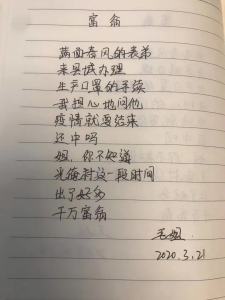 富翁
满面春风的表弟
来县城办理
生产口罩的手续
我担心地问他
疫情就要结束
还中吗
姐，你不知道
光俺村这一段时间
出了好多
千万富翁
毛姐
2020.3.21